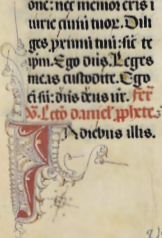 one: nec memor eris i
iurie ciuiū tuoꝝ. Dili
ges primū tuū: sic̄ te
ip̄m. Ego dn̄s. Leges
meas custodite. Ego
eī sū: dn̄s deus ur̄. fer̄
Lc̄o daniel' ꝓph̄ete.
In diebus illis.